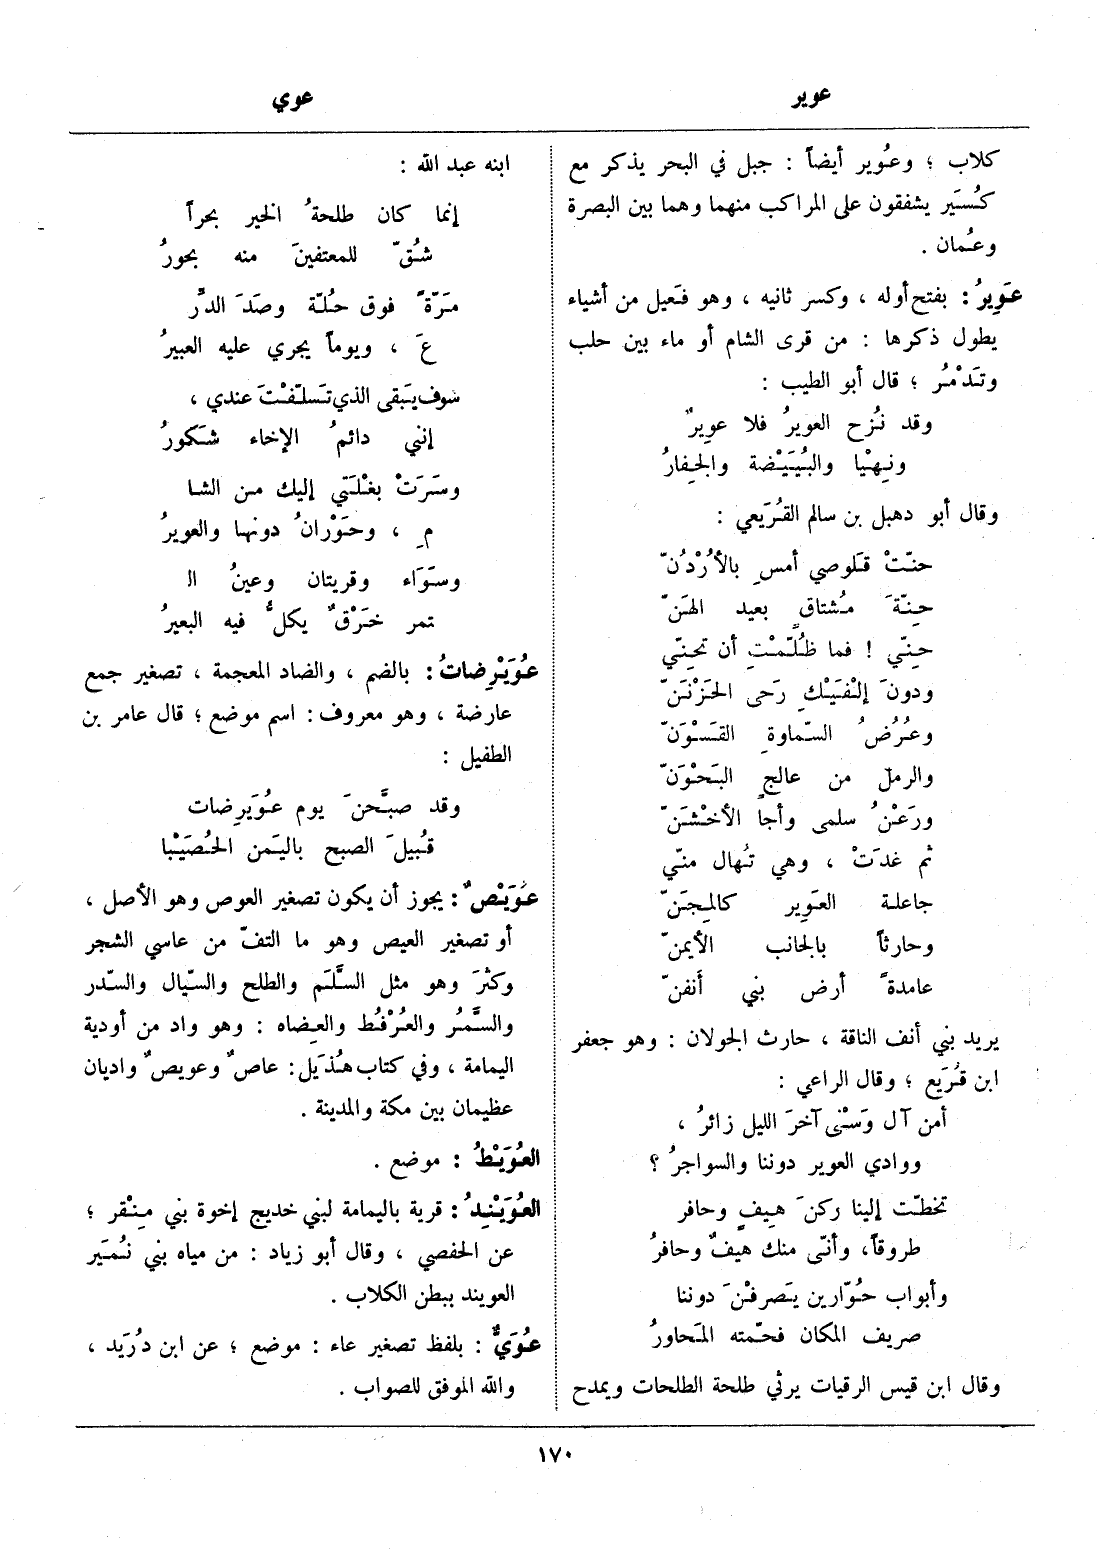 عوير
عوي
كلاب ؛ وعُوير أيضاً : جبل في البحر يذكر مع
كُسَير يشفقون على المراكب منهما وهما بين البصرة
وعُمان .
عَوِيرُ : بفتح أوله ، وكسر ثانيه ، وهو فَعيل من أشياء
يطول ذكرها : من قرى الشام أو ماء بين حلب
وتَدْمُر ؛ قال أبو الطيب :
وقد نُزح العويرُ فلا عويرٌ
ونِهْيا والبُيَيْضة والجِفارُ
وقال أبو دهبل بن سالم القُرَيعي :
حنّتْ قَلوصي أمسِ بالأُرْدُنّ
حِنّةَ مُشتاقٍ بعيد الهَنّ
حِنّي ! فما ظُلّمْتِ أن تحِنّي
ودونَ إلْفَيْكِ رَحى الحَزْنَنّ
وعُرُضُ السّماوةِ القَسْوَنّ
والرملِ من عالجٍ البَحْوَنّ
ورَعْنُ سلمى وأجأ الأخْشَنّ
ثم غدَتْ ، وهي تُهال منّي
جاعلة العَوير كالمِجَنّ
وحارثاً بالجانب الأيمنّ
عامدةً أرض بني أَنفنّ
يريد بني أنف الناقة ، حارث الجولان : وهو جعفر
ابن قُرَيع ؛ وقال الراعي :
أمن آل وَسْنى آخرَ الليل زائرُ ،
ووادي العوير دوننا والسواجرُ ؟
تخطّت إلينا ركنَ هِيفٍ وحافر
طروقاً، وأنّى منك هيفٌ وحافرُ
وأبواب حُوّارين يَصرفْنَ دوننا
صريف المكان فحّمته المَحاورُ
وقال ابن قيس الرقيات يرثي طلحة الطلحات ويمدح
ابنه عبد الله :
إنما كان طلحةُ الخير بحراً
شُقّ للمعتفينَ منه بحورُ
مَرّةً فوق حُلّة وصَدَ الدّر
عَ ، ويوماً يجري عليه العبيرُ
سوف يَبقى الذي تَسلّفْتَ عندي ،
إنني دائمُ الإخاء شَكورُ
وسَرَتْ بغْلَتي إليك من الشا
مِ ، وحَوْرانُ دونها والعويرُ
وسَوَاء وقريتان وعينُ ال
تمر خَرْقٌ يكلُّ فيه البعيرُ
عُوَيْرِضاتُ : بالضم ، والضاد المعجمة ، تصغير جمع
عارضة ، وهو معروف : اسم موضع ؛ قال عامر بن
الطفيل :
وقد صبّحنَ يوم عُوَيرِضات
قُبيلَ الصبح باليَمن الحُصَيْبا
عُوَيْصٌ : يجوز أن يكون تصغير العوص وهو الأصل ،
أو تصغير العيص وهو ما التفّ من عاسي الشجر
وكثرَ وهو مثل السَّلَم والطلح والسّيال والسّدر
والسَّمُر والعُرْفُط والعِضاه : وهو واد من أودية
اليمامة ، وفي كتاب هُذَيل : عاصٌ وعويصٌ واديان
عظيمان بين مكة والمدينة .
العُوَيْطُ : موضع .
العُوَيْنِدُ : قرية باليمامة لبني خديج إخوة بني مِنْقر ؛
عن الحفصي ، وقال أبو زياد : من مياه بني نُمَير
العويند ببطن الكلاب .
عُوَيٌّ : بلفظ تصغير عاء : موضع ؛ عن ابن دُرَيد ،
والله الموفق للصواب .
١٧٠